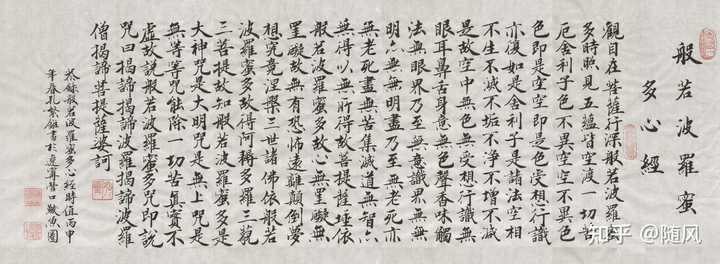 般若波羅蜜
多心經
觀自在菩薩行深般若波羅蜜
多時照見五蘊皆空渡一切苦
厄舍利子色不異空空不異色
色即是空空即是色受想行識
亦復如是舍利子是諸法空相
不生不滅不垢不淨不增不減
是故空中無色無受想行識無
眼耳鼻舌身意無色聲香味觸
法無眼界乃至無意識界無無
明亦無無明盡乃至無老死亦
無老死盡無苦集滅道無智亦
無得以無所得故菩提薩埵依
般若波羅蜜多故心無罣礙無
罣礙故無有恐怖遠離顛倒夢
想究竟涅槃三世諸佛依般若
波羅蜜多故得阿耨多羅三藐
三菩提故知般若波羅蜜多是
大神咒是大明咒是無上咒是
無等等咒能除一切苦真實不
虛故說般若波羅蜜多咒即說
咒曰揭諦揭諦波羅揭諦波羅
僧揭諦菩提薩婆訶
恭錄般若波羅蜜多心經時值丙申
年春孔繁書於遼寧營口鮁魚圈
知乎 @随风